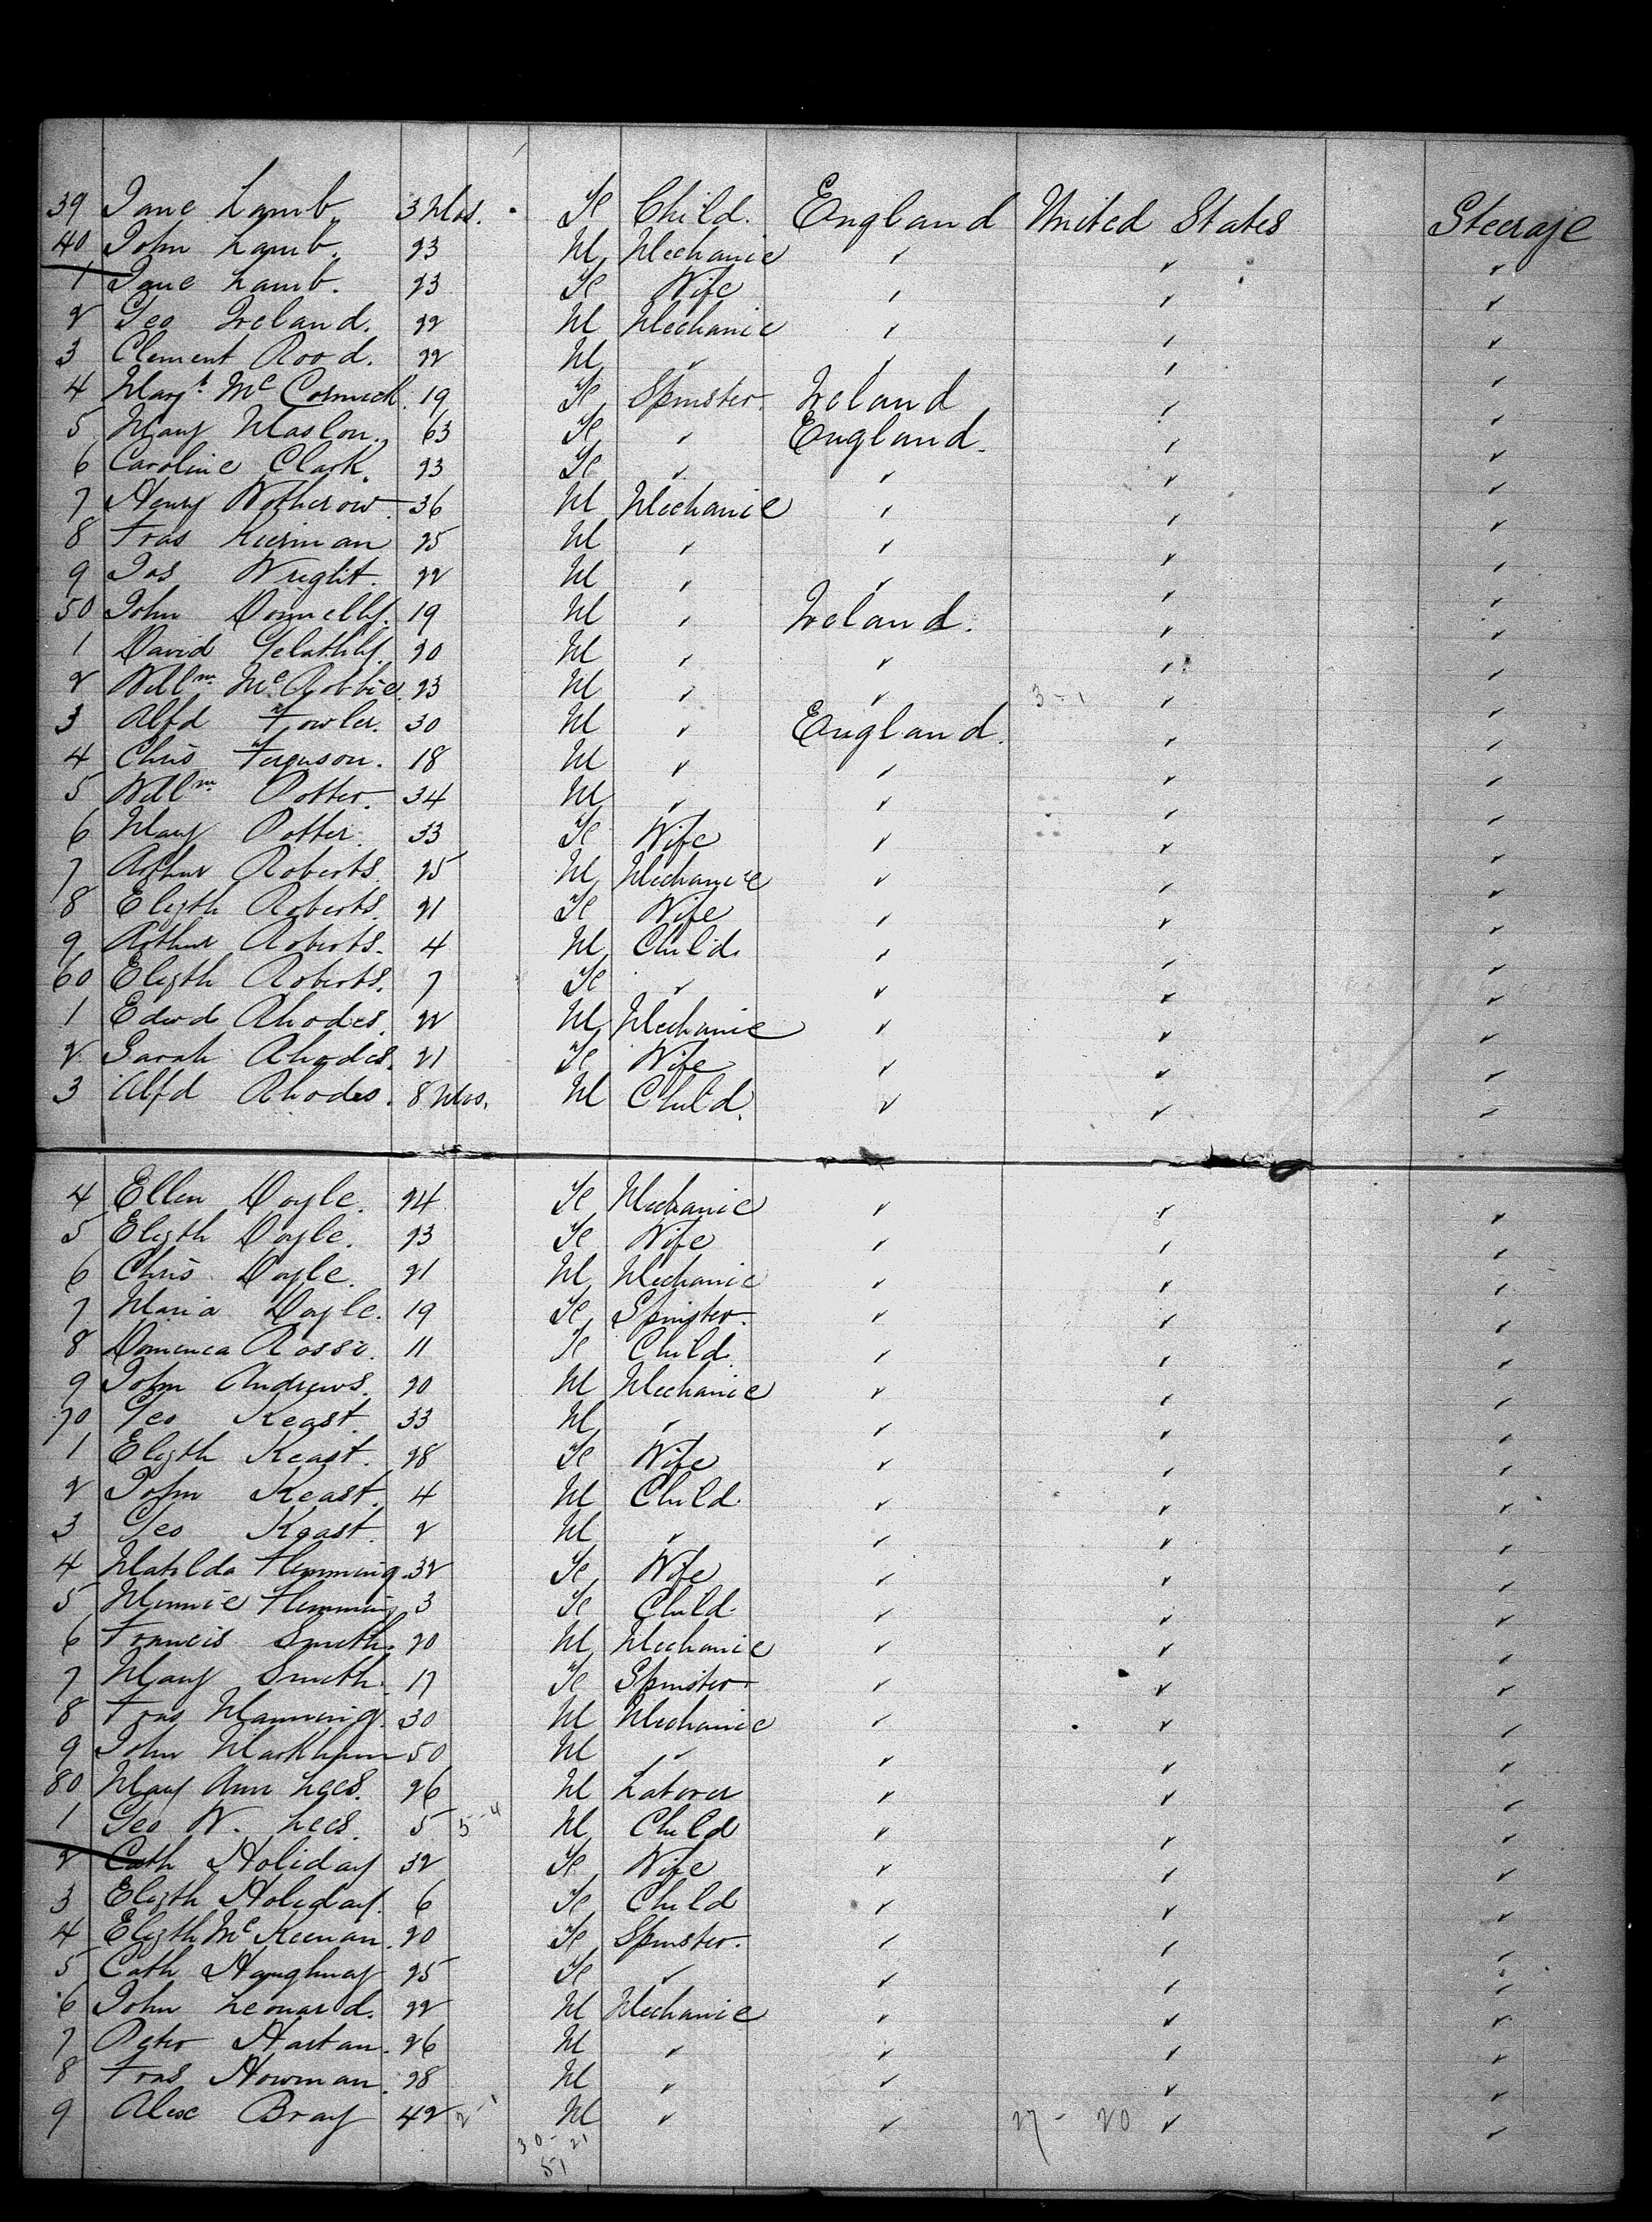 39 Jane Lamb. 3 Mos. Fe Child. England United States Steerage
40 John Lamb. 23 M Mechanic ✓ ✓ ✓
1 Jane Lamb. 23 Fe Wife ✓ ✓ ✓
2 Geo Ireland. 22 M Mechanic ✓ ✓ ✓
3 Clement Rood. 22 M ✓ ✓ ✓ ✓
4 Margt. McCormick. 19 Fe Spinster. Ireland ✓ ✓
5 Mary Maslon. 63 Fe ✓ England. ✓ ✓
6 Caroline Clark. 23 Fe ✓ ✓ ✓ ✓
7 Henry Wotherow. 36 M Mechanic ✓ ✓ ✓
8 Fras Kierman 25 M ✓ ✓ ✓ ✓
9 Jos Wright. 22 M ✓ ✓ ✓ ✓
50 John Donnelly. 19 M ✓ Ireland. ✓ ✓
1 David Gelathly. 20 M ✓ ✓ ✓ ✓
2 Willm. McRobbie. 23 M ✓ ✓ 3-1 ✓ ✓
3 Alfd Fowler. 30 M ✓ England. ✓ ✓
4 Chris Ferguson. 18 M ✓ ✓ ✓ ✓
5 Willm. Potter. 34 M ✓ ✓ ✓ ✓
6 Mary Potter. 33 Fe Wife ✓ ✓ ✓
7 Arthur Roberts. 25 M Mechanic ✓ ✓ ✓
8 Elizth Roberts. 21 Fe Wife ✓ ✓ ✓
9 Arthur Roberts. 4 M Child. ✓ ✓ ✓
60 Elizth Roberts. 7 Fe ✓ ✓ ✓ ✓
1 Edwd Rhodes. 22 M Mechanic ✓ ✓ ✓
2 Sarah Rhodes. 21 Fe Wife ✓ ✓ ✓
3 Alfd Rhodes. 8 Mos. M Child. ✓ ✓ ✓
4 Ellen Doyle. 24 Fe Mechanic ✓ ✓ ✓
5 Elizth Doyle. 23 Fe Wife ✓ ✓ ✓
6 Chris Doyle. 21 M Mechanic ✓ ✓ ✓
7 Maria Doyle. 19 Fe Spinster. ✓ ✓ ✓
8 Domenica Rossi. 11 Fe Child. ✓ ✓ ✓
9 John Andrews. 20 M Mechanic ✓ ✓ ✓
70 Geo Keast. 33 M ✓ ✓ ✓ ✓
1 Elizth Keast. 28 Fe Wife ✓ ✓ ✓
2 John Keast. 4 M Child ✓ ✓ ✓
3 Geo Keast. 2 M ✓ ✓ ✓ ✓
4 Matilda Hemming. 32 Fe Wife ✓ ✓ ✓
5 Minnie Hemming 3 Fe Child ✓ ✓ ✓
6 Francis Smith. 20 M Mechanic ✓ ✓ ✓
7 Mary Smith. 17 Fe Spinster ✓ ✓ ✓
8 Fras Manning. 30 M Mechanic ✓ ✓ ✓
9 John Markham 50 M ✓ ✓ ✓ ✓
80 Mary Ann Lees. 26 M Laborer ✓ ✓ ✓
1 Geo W. Lees. 5 5-4 M Child ✓ ✓ ✓
2 Cath Holiday 32 Fe Wife ✓ ✓ ✓
3 Elizth Holiday. 6 Fe Child ✓ ✓ ✓
4 Elizth McKeenan. 20 Fe Spinster. ✓ ✓ ✓
5 Cath Haughnay 25 Fe ✓ ✓ ✓ ✓
6 John Leonard. 22 M Mechanic ✓ ✓ ✓
7 Peter Hartan. 26 M ✓ ✓ ✓ ✓
8 Fras Howman. 28 M ✓ ✓ ✓ ✓
9 Alexc Bray 42 2-1 M ✓ ✓ 27-20 ✓ ✓
30-21
51